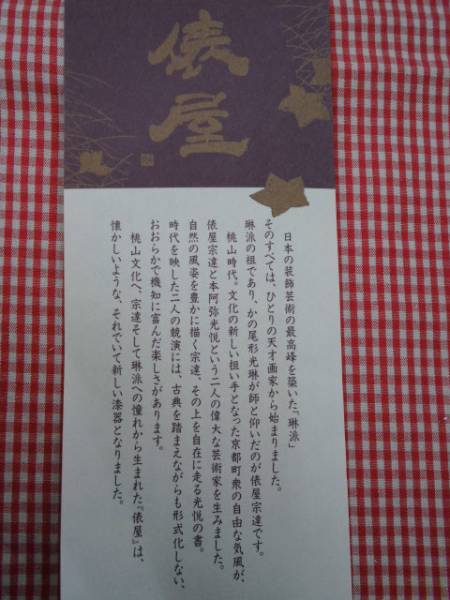 俵屋
日本の装飾芸術の最高峰を築いた『琳派』
そのすべては、ひとりの天才画家から始まりました。
琳派の祖であり、かの尾形光琳が師と仰いだのが俵屋宗達です。
桃山時代。文化の新しい担い手となった京都町衆の自由な気風が、
俵屋宗達と本阿弥光悦という二人の偉大な芸術家を生みました。
自然の風姿を豊かに描く宗達、その上を自在に走る光悦の書。
時代を映した二人の競演には、古典を踏まえながらも形式化しない、
おおらかで機知に富んだ楽しさがあります。
桃山文化へ、宗達そして琳派への憧れから生まれた『俵屋』は、
懐かしいような、それでいて新しい漆器となりました。